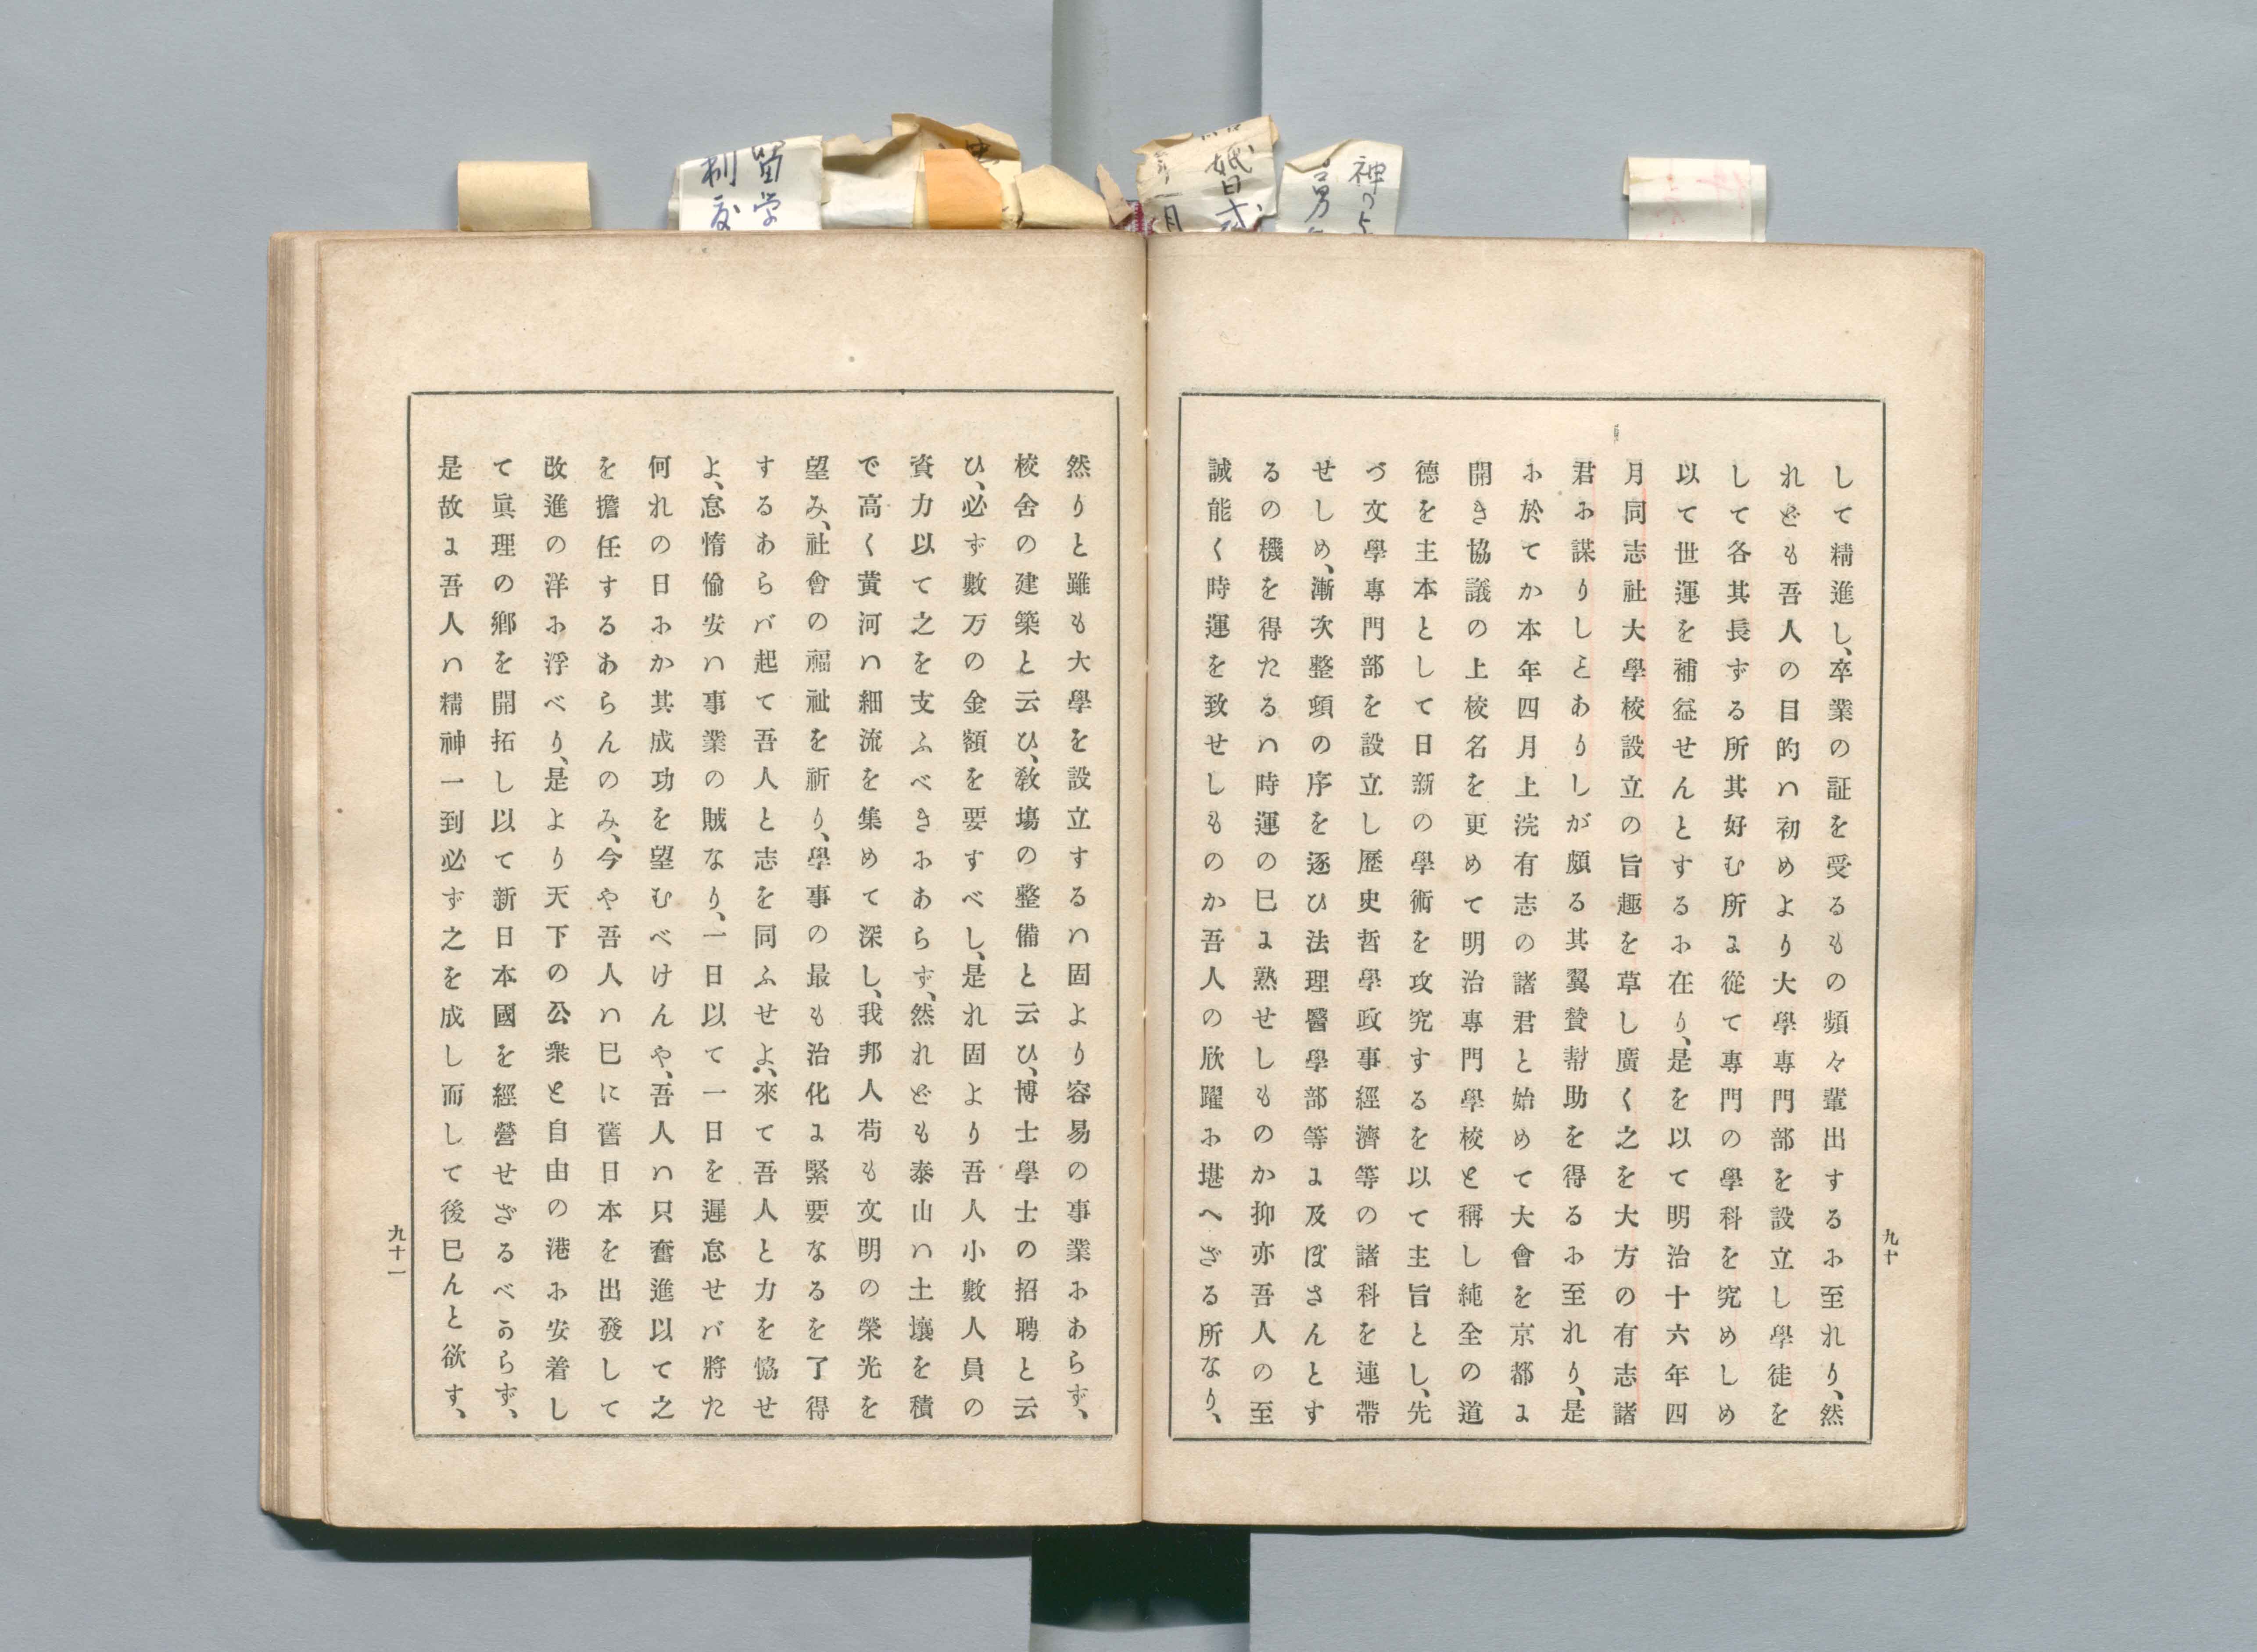 留学
制度
婚式
月
神の
して精進し、卒業の証を受るもの頻々輩出するに至れり、然
れども吾人の目的ハ初めより大學專門部を設立し學徒を
して各其長ずる所其好む所に從て專門の學科を究めしめ
以て世運を補益せんとするに在り、是を以て明治十六年四
月同志社大學校設立の旨趣を草し廣く之を大方の有志諸
君に謀りしとありしが頗る其翼賛幇助を得るに至れり、是
に於てか本年四月上浣有志の諸君と始めて大會を京都に
開き協議の上校名を更めて明治專門學校と稱し純全の道
德を主本として日新の學術を攻究するを以て主旨とし、先
づ文學專門部を設立し歷史哲學政事經濟等の諸科を連帶
せしめ、漸次整頓の序を逐ひ法理醫學部等に及ぼさんとす
るの機を得たるハ時運の已に熟せしものか抑亦吾人の至
誠能く時運を致せしものか吾人の欣躍に堪へざる所なり、
九十
然りと雖も大學を設立するハ固より容易の事業にあらず、
校舍の建築と云ひ、敎塲の整備と云ひ、博士學士の招聘と云
ひ、必ず數万の金額を要すべし、是れ固より吾人小數人員の
資力以て之を支ふべきにあらず、然れども泰山ハ土壤を積
で高く黃河ハ細流を集めて深し、我邦人苟も文明の榮光を
望み、社會の福祉を祈り、學事の最も治化に緊要なるを了得
するあらバ起て吾人と志を同ふせよ、來て吾人と力を恊せ
よ、怠惰偷安ハ事業の賊なり、一日以て一日を遲怠せバ將た
何れの日にか其成功を望むべけんや、吾人ハ只奮進以て之
を擔任するあらんのみ、今や吾人ハ已に舊日本を出發して
改進の洋に浮べり、是より天下の公衆と自由の港に安着し
て眞理の鄕を開拓し以て新日本國を經營せざるべからず、
是故に吾人ハ精神一到必ず之を成し而して後已んと欲す、
九十一